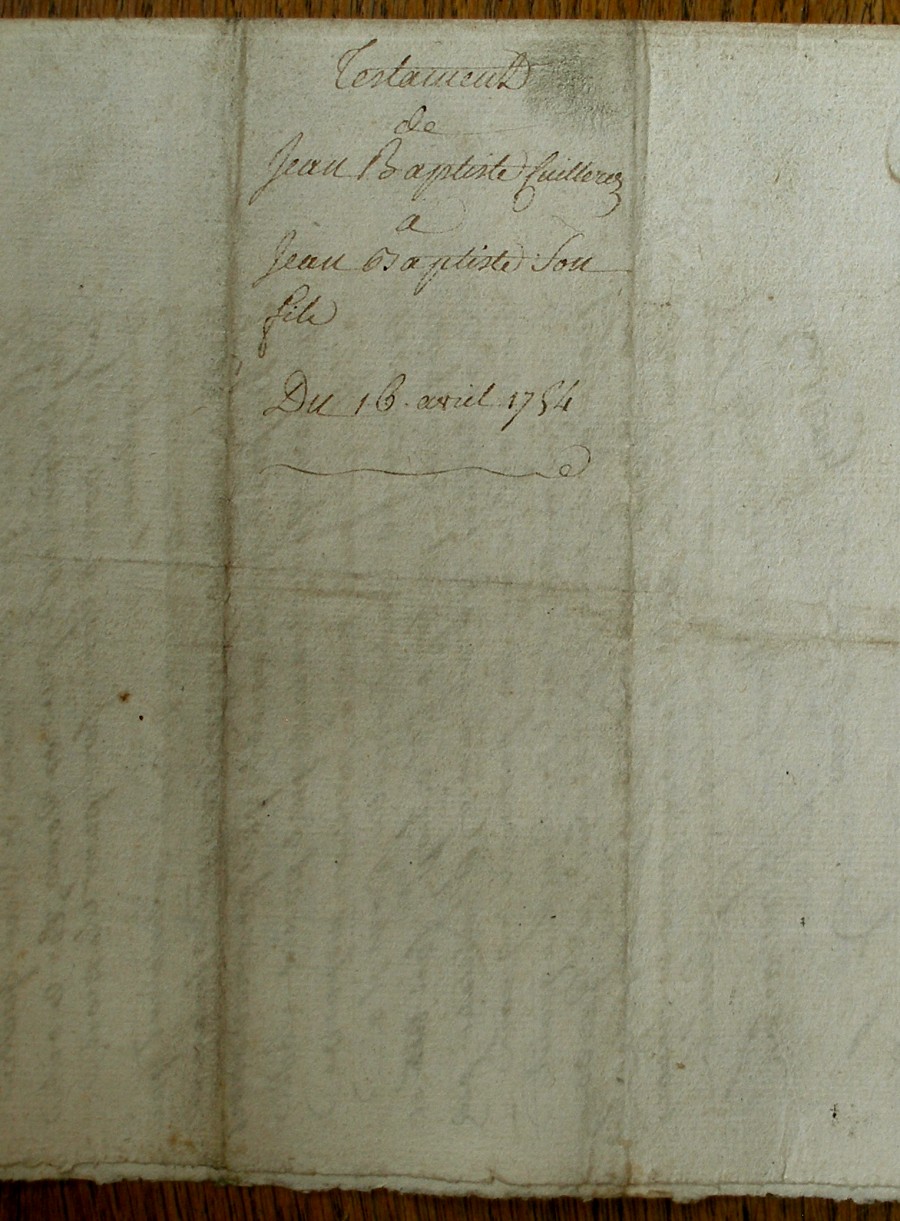 Testament
de
Jean Baptiste Cuillerez
a
Jean Baptiste Son
fils
Du 16 avril 1754